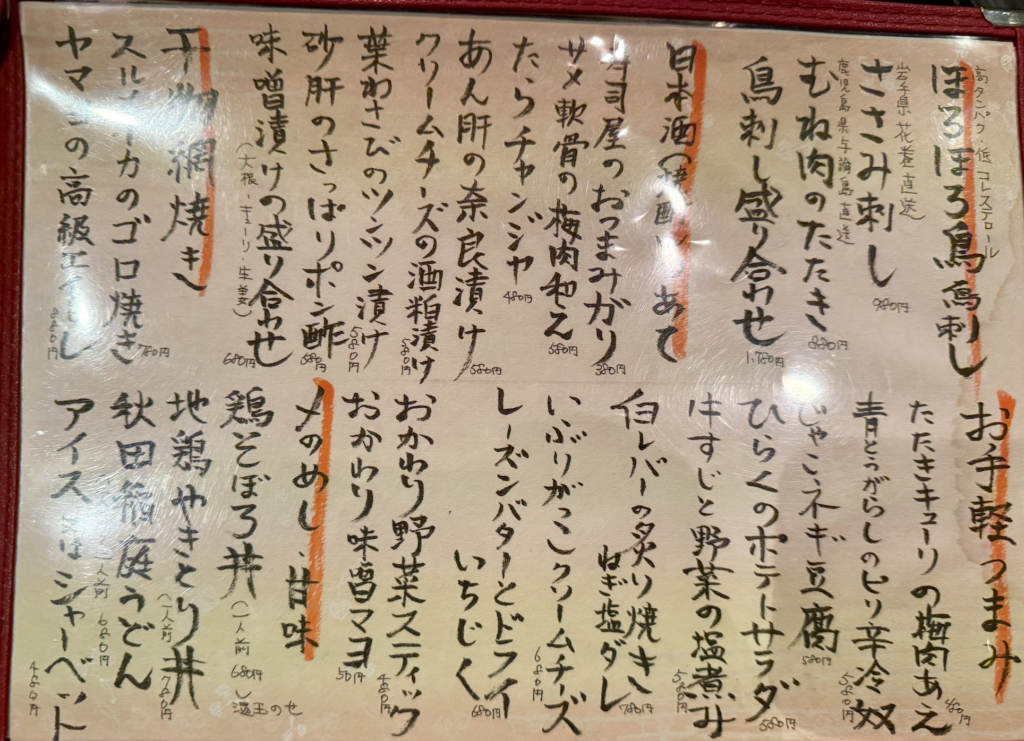 高タンパク・低コレステロール
ほろほろ鳥 鳥刺し
岩手県花巻直送
ささみ刺し 980円
鹿児島県与論島直送
むね肉のたたき 880円
鳥刺し盛り合わせ 1,780円
日本酒の あて
寿司屋のおつまみガリ 380円
サメ軟骨の梅肉和え 580円
たらチャンジャ 480円
あん肝の奈良漬け 580円
クリームチーズの酒粕漬け 580円
葉わさびのツンツン漬け 580円
砂肝のさっぱりポン酢 580円
味噌漬けの盛り合わせ 680円
(大根・キューリ・生姜)
干物網焼き
スルメイカのゴロ焼き 780円
の高級 880円
お手軽つまみ
たたきキューリの梅肉あえ 480円
青とうがらしのピリ辛冷奴 580円
じゃこネギ豆腐 580円
ひらくのポテトサラダ 580円
牛すじと野菜の塩煮み 580円
白レバーの炙り焼き
ねぎ塩ダレ 780円
いぶりがっこクリームチーズ 680円
レーズンバターとドライ
いちじく 680円
おかわり野菜スティック 480円
おかわり味噌マヨ 50円
〆のめし・甘味
鶏そぼろ丼 (一人前 680円) 温玉のせ
地鶏やきとり丼 (一人前 780円)
秋田稲庭うどん 一人前 680円
アイス またはシャーベット 480円